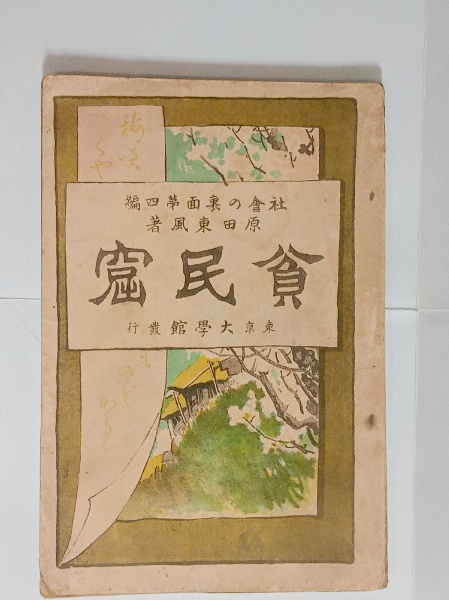 社會の裏面第四編
原田東風著
貧民窟
東京大學館發行
梅咲
くや